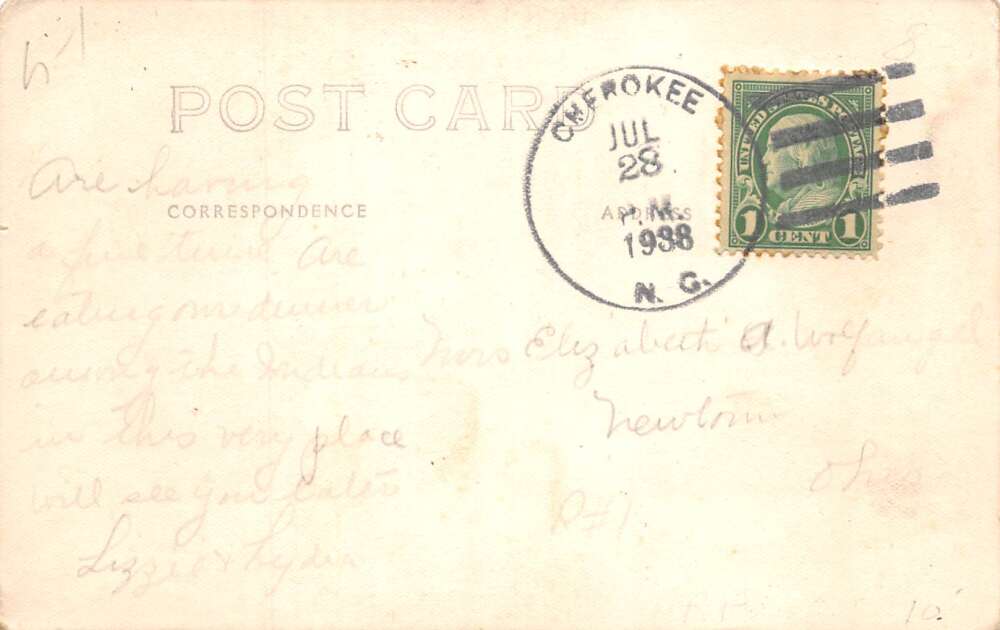 POST CARD
CORRESPONDENCE
ADDRESS
CHEROKEE
JUL
28
P.M.
1938
N. C.
UNITED STATES POSTAGE
1 CENT 1
Are having
a fine time are
eating our dinner
among the Indians
in this very place
will see you later
Lizzie & Lydia
Mrs Elizabeth A.
Newtown
Ohio
R#1
10